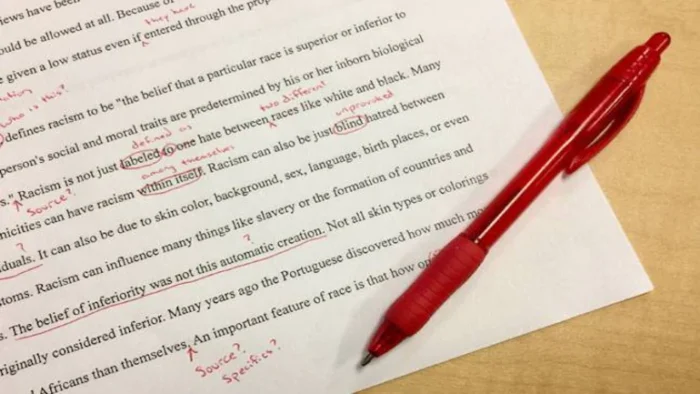 views have been
ould be allowed at all. Because of
they have
e given a low status even if entered through the prop
who is this?
defines racism to be "the belief that a particular race is superior or inferior to
person's social and moral traits are predetermined by his or her inborn biological
defined as two different unprovoked
s." Racism is not just labeled to one hate between races like white and black. Many
Source? among themselves
nicities can have racism within itself. Racism can also be just blind hatred between
?
duals. It can also be due to skin color, background, sex, language, birth places, or even
?
toms. Racism can influence many things like slavery or the formation of countries and
s. The belief of inferiority was not this automatic creation. Not all skin types or colorings
riginally considered inferior. Many years ago the Portuguese discovered how much mo
Africans than themselves. An important feature of race is that how
Source?
Specifics?